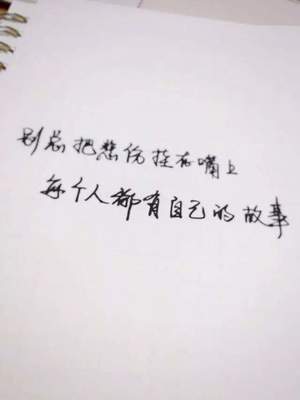 别总把悲伤挂在嘴上
每个人都有自己的故事